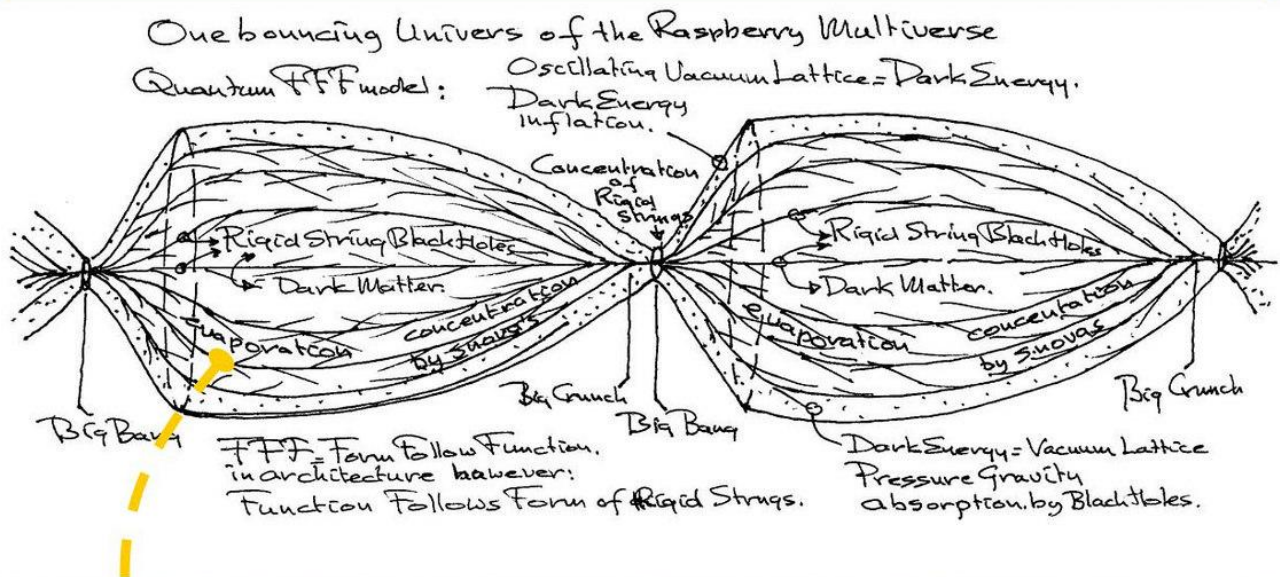 One bouncing Univers of the Raspberry Multiverse
Quantum FFF model:
Oscillating Vacuum Lattice = Dark Energy.
Dark Energy
inflation.
Concentration
of
Rigid
strings
Rigid String Black Holes
Dark Matter.
evaporation
concentration
by snova's
Big Bang
Big Crunch
Big Bang
Rigid String Black Holes
Dark Matter.
evaporation
concentation
by snovas
Big Crunch
FFF = Form Follow Function.
in architecture however:
Function Follows Form of Rigid Strngs.
Dark Energy = Vacuum Lattice
Pressure Gravity
absorption. by Black Holes.